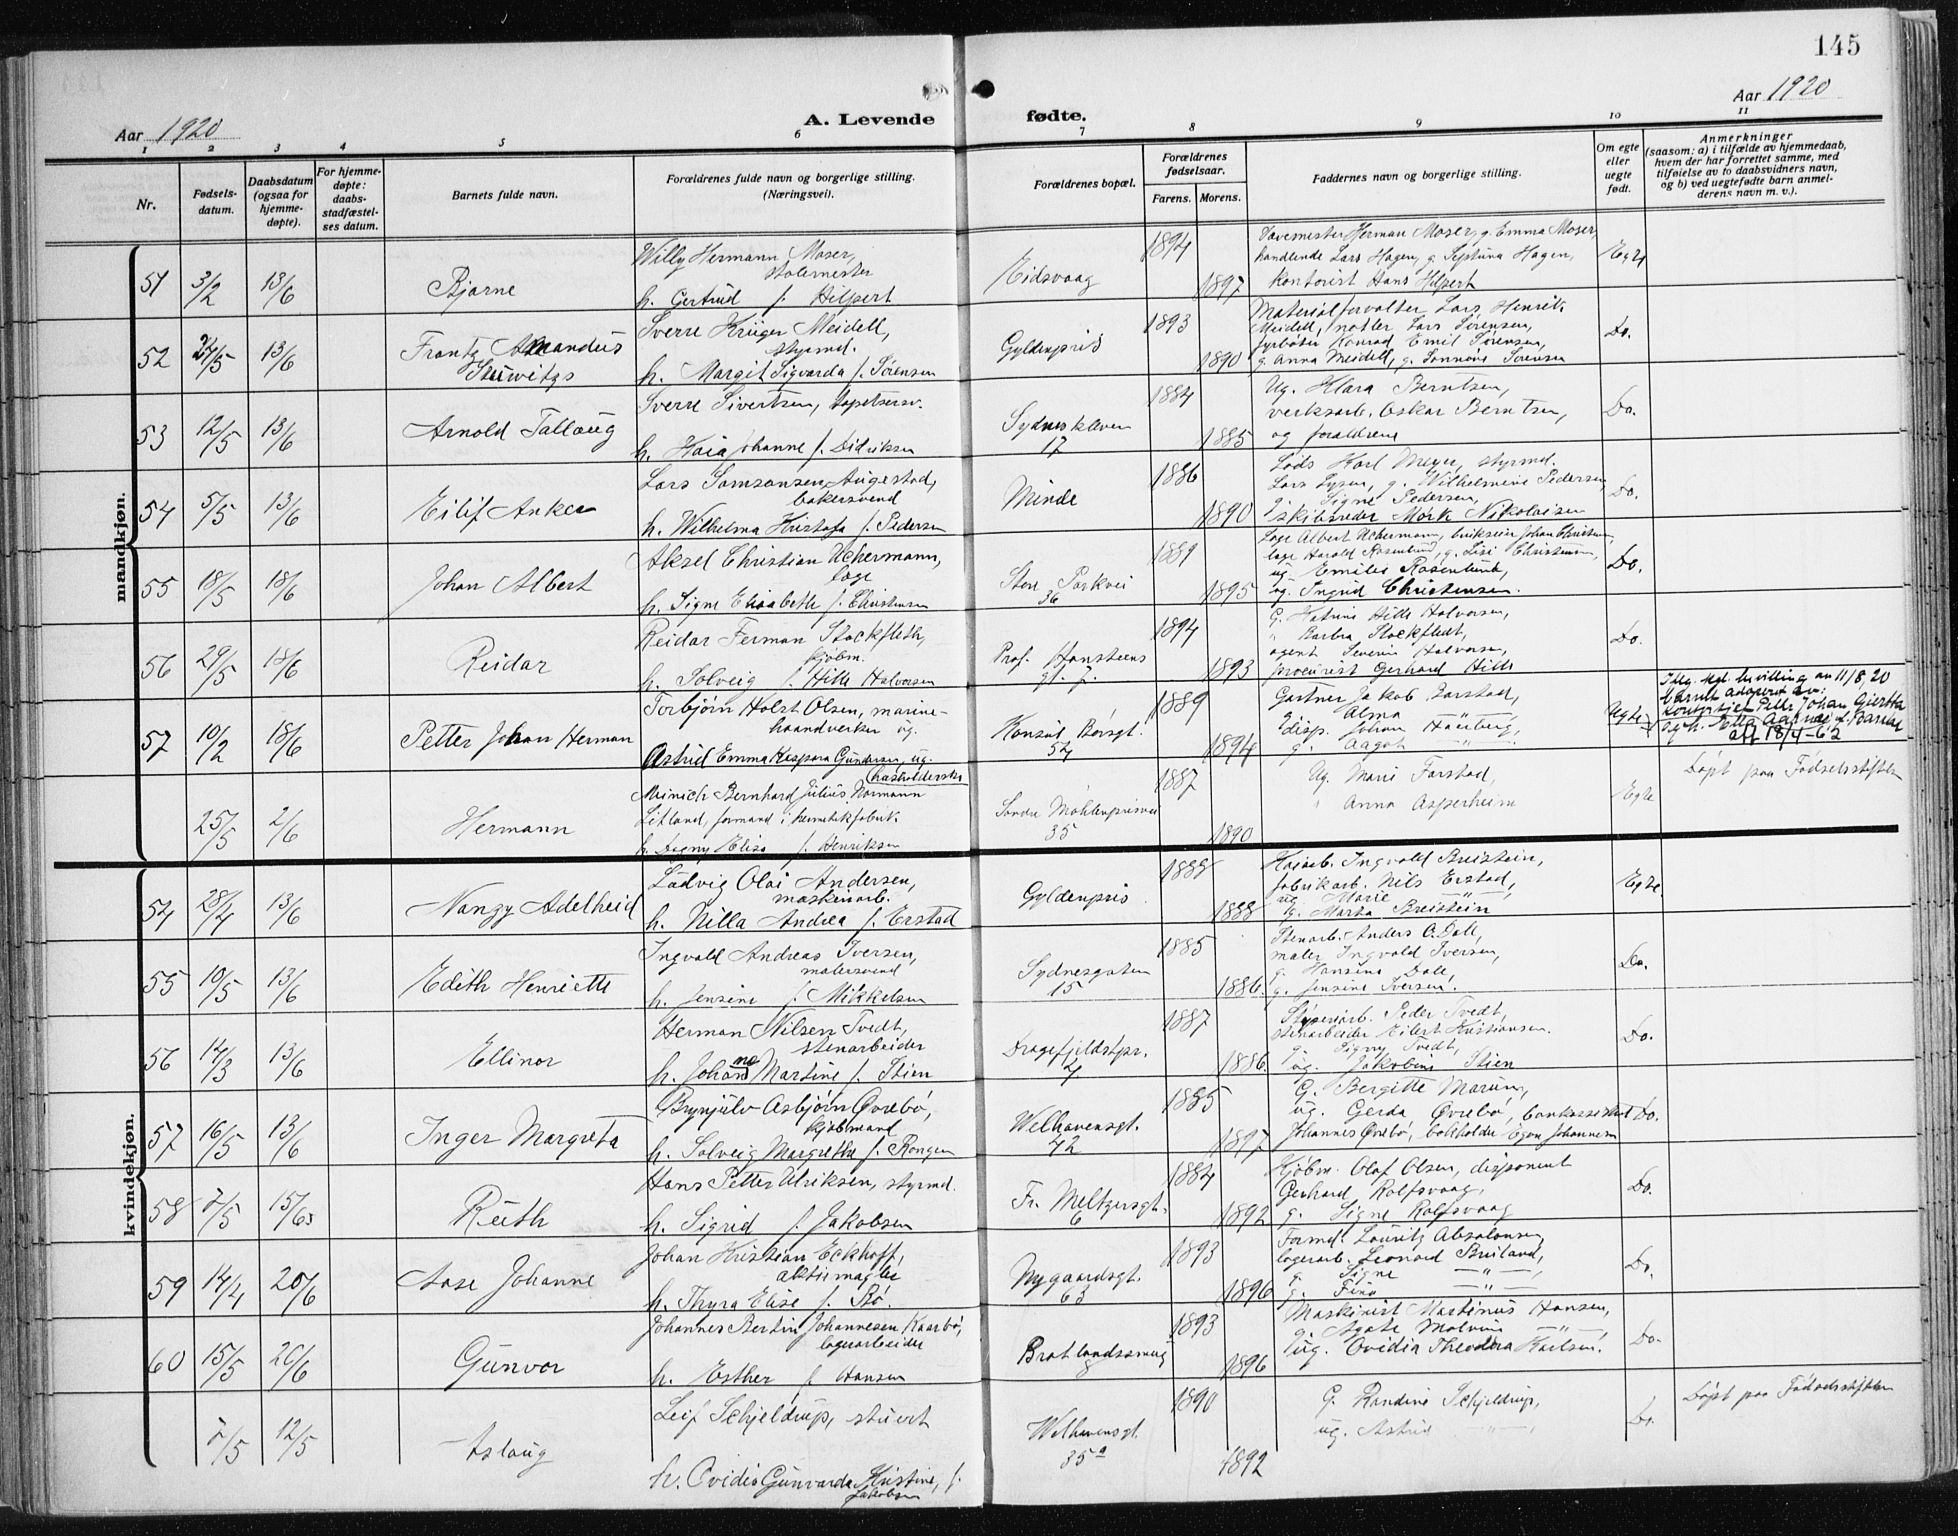 145
Aar 1920
A. Levende
fødte.
Aar 1920
1 2 3 4 5 6 7 8 9 10 11
Nr.
Fødsels-
datum.
Daabsdatum
(ogsaa for
hjemme-
døpte).
For hjemme-
døpte:
daabs-
stadfæstel-
ses datum.
Barnets fulde navn.
Forældrenes fulde navn og borgerlige stilling.
(Næringsvei).
Forældrenes bopæl.
Forældrenes
fødselsaar.
Farens. Morens.
Faddernes navn og borgerlige stilling.
Om egte
eller
uegte
født.
Anmerkninger
(saasom: a) i tilfælde av hjemmedaab,
hvem der har forrettet samme, med
tilføielse av to daabsvidners navn,
og b) ved uegtefødte barn anmel-
derens navn m. v.).
mandkjøn.
51 3/2 13/6 Bjarne
Willy Hermann Moser,
h. Gertrud f. Hilpert
Eidsvaag 1894 1897
Herman Moser, g. Emma Moser,
handlende Lars Hagen, g. Septina Hagen,
kontorist Hans Hilpert
Egte
52 24/5 13/6 Frantz Amandus
Sverre Krüger Meidell,
styrmd.
h. Margit Sigvarda f. Sørensen
Gyldenpris 1893 1890
Materialforvalter Lars Henrik
Meidell, Lars Sørensen,
fyrbøter Konrad Emil Sørensen,
g. Anna Meidell, g. Sørensen
Do.
53 12/5 13/6 Arnold Tallaug
Sverre Sivertsen, tapetserer.
h. Johanne f. Didriksen
Sydneskleven
17
1884 1885
Ug. Klara Berntsen,
verksarb. Oskar Berntsen,
og forældrene
Do.
54 5/5 13/6 Eilif Anker
Lars Samsonsen Augestad,
bakersvend
h. Wilhelma Kristofa f. Pedersen
Minde 1886 1890
Lods Karl Meyer, styrmd.
Lars g. Wilhelmine Pedersen,
g. Signe Pedersen,
skibsreder Mørk Nikolaisen
Do.
55 18/5 18/6 Johan Albert
Aksel Christian Uchermann,
læge
h. Signe Elisabeth f. Christensen
Store Parkvei
36
1889 1895
Læge Albert Uchermann, Johan Christensen,
læge Harald Rosenlund, g. Christensen,
ug. Emilie Rosenlund,
ug. Ingrid Christensen.
Do.
56 29/5 18/6 Reidar
Reidar Ferman Stockfleth,
kjøbm.
h. Solveig f. Hille Halvorsen
Prof. Hansteens
gt. 7.
1894 1893
G. Katrine Hille Halvorsen,
" Barbra Stockfledt,
agent Severin Halvorsen,
procurist Gerhard Hille
Do.
57 10/2 18/6 Petter Johan Herman
Torbjørn Holst Olsen, marine-
haandverker og
Astrid Emma Kaspara Gundersen, ug.
husholderske
Konsul Børsgt.
54
1889 1894
Gartner Jakob Farstad,
g. Alma —"—
disp. Johan Hauberg,
g. Aagot —"—.
Uegte
Iflg. kgl. bevilling av 11/8, 20
barnet adopteret av:
Petter Johan Giertta
att 18/4-62
25/5 2/6 Hermann
Meinich Bernhard Julius Normann
Litland, formand i hermetikfabrik.
h. Dagny Elise f. Henriksen
Søndre Møhlenprisvei
35
1887 1890
Ug. Marie Farstad,
" Anna Asperheim
Egte
Døpt paa Fødselsstiftelsen
kvindekjøn.
54 28/4 13/6 Nangy Adelheid
Ludvig Olai Andersen,
maskinarb.
h. Nilla Andrea f. Erstad
Gyldenpris 1888 1888
Kaiarb. Ingvald Breistein,
fabrikarb. Nils Erstad,
ug. Marie —"—,
g. Marta Breistein
Egte
55 10/5 13/6 Edith Henriette
Ingvald Andreas Iversen,
malersvend
h. Jensine f. Mikkelsen
Sydnesgaten
15
1885 1886.
Stenarb. Anders O. Dale,
maler Ingvald Iversen,
g. Hansine Dale,
g. Jensine Iversen.
Do.
56 14/3 13/6 Ellinor
Herman Nilsen Tvedt,
stenarbeider
h. Johanne Martine f. Stien
Dragefjeldstpr.
4
1887 1886.
Støperiarb. Peder Tvedt,
stenarbeider Eilert Kristiansen.
g. Signy Tvedt,
ug. Jakobine Stien
Do.
57 16/5 13/6 Inger Margreta
Brynjulv Asbjørn Øvrebø,
kjøbmand
h. Solveig Margrethe f. Rongen
Welhavensgt.
42
1885 1897
G. Bergitte Marum,
ug. Gerda Øvrebø, bankassistent
Johannes Øvrebø, bokholder Egon Johannesen
Do.
58 7/5 15/6 Ruth
Hans Petter Ulriksen, styrmd.
h. Sigrid f. Jakobsen
Fr. Meltzersgt.
6
1884 1892
Kjøbm. Olaf Olsen, disponent
Gerhard Rolfsvaag,
g. Signe Rolfsvaag
Do.
59 14/4 20/6 Aase Johanne
Johan Kristian Eckhoff,
aktiemægler
h. Thyra Elise f. Bø.
Nygaardsgt.
63
1893 1896
Formd. Lauritz Absalonsen,
lagerarb. Leonard Breiland,
g. Signe —"—,
g. Fina —"—
Do.
60 15/5 20/6 Gunvor
Johannes Bertin Johannesen Kaarbø,
lagerarbeider
h. Esther f. Hansen
Bratlandssmug
8
1893 1896
Maskinist Martinus Hansen,
g. Agate Malvine —"—
ug. Ovidia Theodora Karlsen.
Do.
7/5 12/5 Aslaug
Leif Schjeldrup, stuert
h. Ovidia Gunvarda Kristine, f.
Jakobsen
Welhavensgt.
35a
1890 1892
G. Randine Schjeldrup,
ug. Astrid —"—
Do.
Døpt paa Fødselsstiftelsen